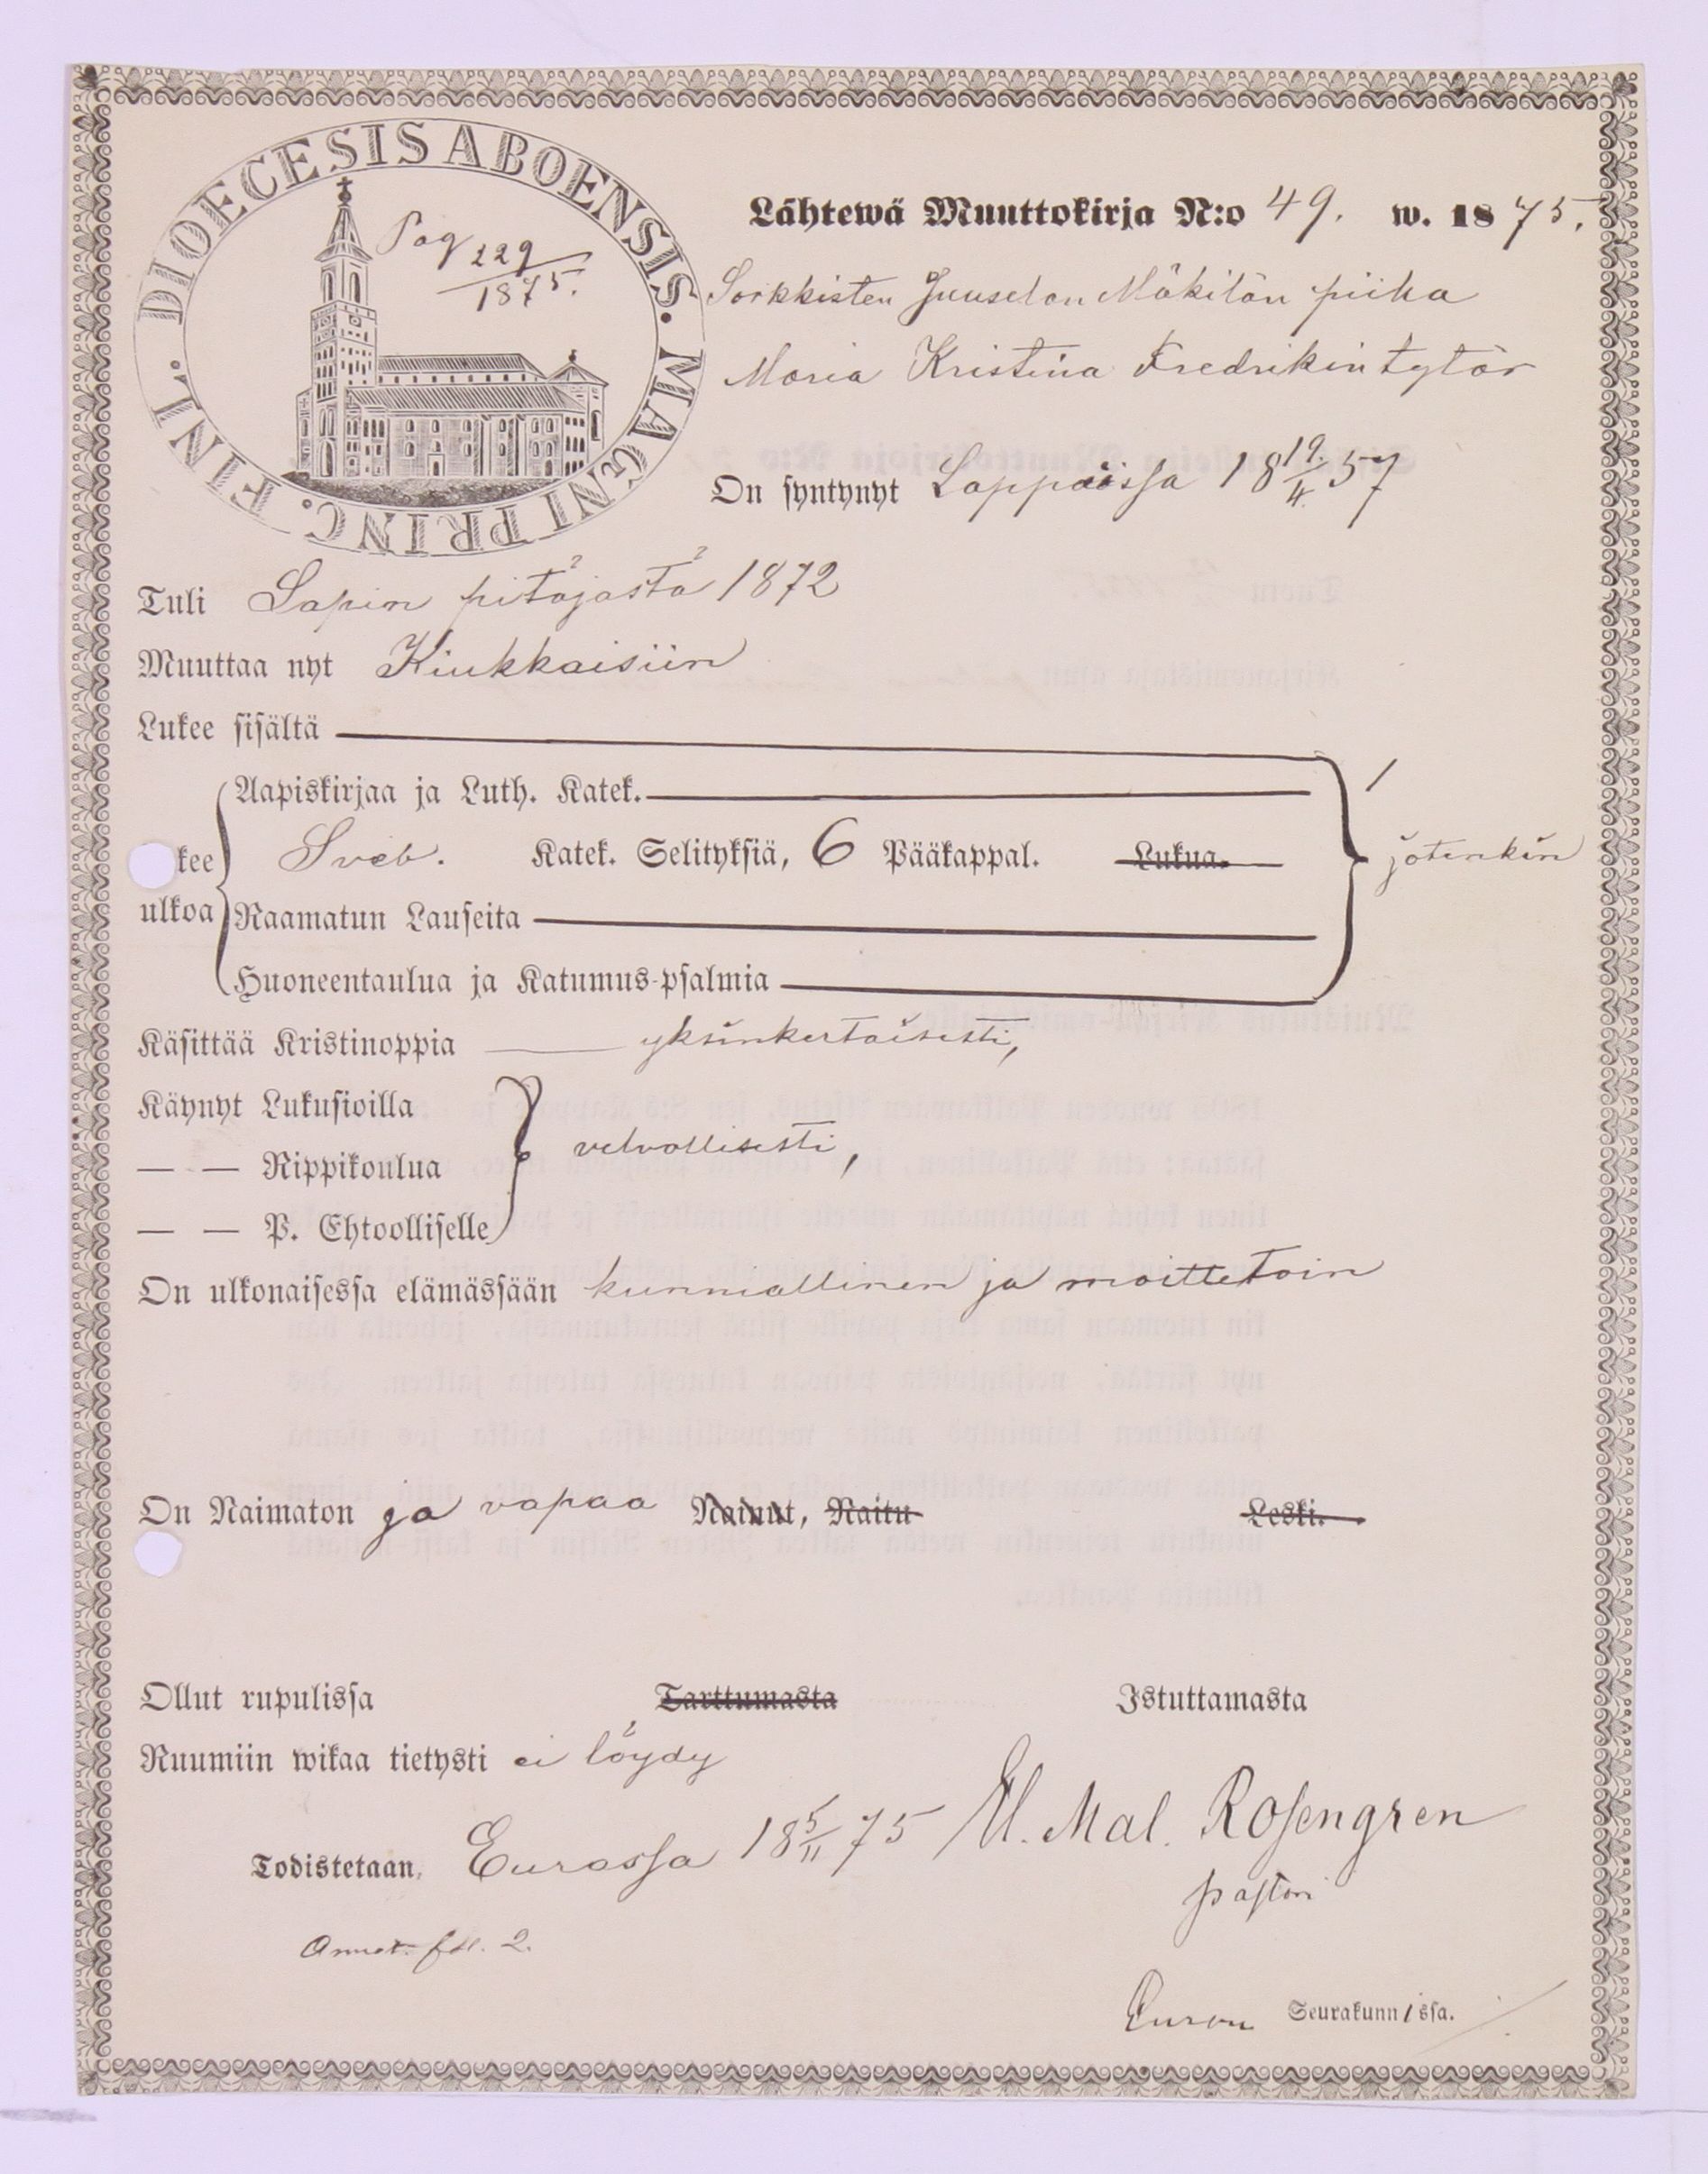 DIOECESIS ABOENSIS. MAGNI PRINC. FINL.
Pag 229
1875.
Lähtewä Muuttokirja N:o 49. w. 1875.
Sorkkisten Juuselan Mäkilän piika
Maria Kristina Fredrikintytär
On syntynyt Lappäissä 18 19/4 57
Tuli Lapin pitäjästä 1872
Muuttaa nyt Kiukkaisiin
Lukee sisältä
Aapiskirjaa ja Luth. Katek.
kee Sveb. Katek. Selityksiä, 6 Pääkappal. Lukua. jotenkin
ulkoa Raamatun Lauseita
Huoneentaulua ja Katumus-psalmia
Käsittää Kristinoppia yksinkertaisesti,
Käynyt Lukusioilla
— — Rippikoulua velvollisesti,
— — P. Ehtoolliselle
On ulkonaisessa elämässään kunniallinen ja moittetoin
On Naimaton ja vapaa Nainut, Naitu Leski.
Ollut rupulissa Tarttumasta Istuttamasta
Ruumiin wikaa tietysti ei löydy
Todistetaan, Eurassa 18 5/11 75 Mal. Rosengren
pastori
Annot. 2.
Euran Seurakunnissa.